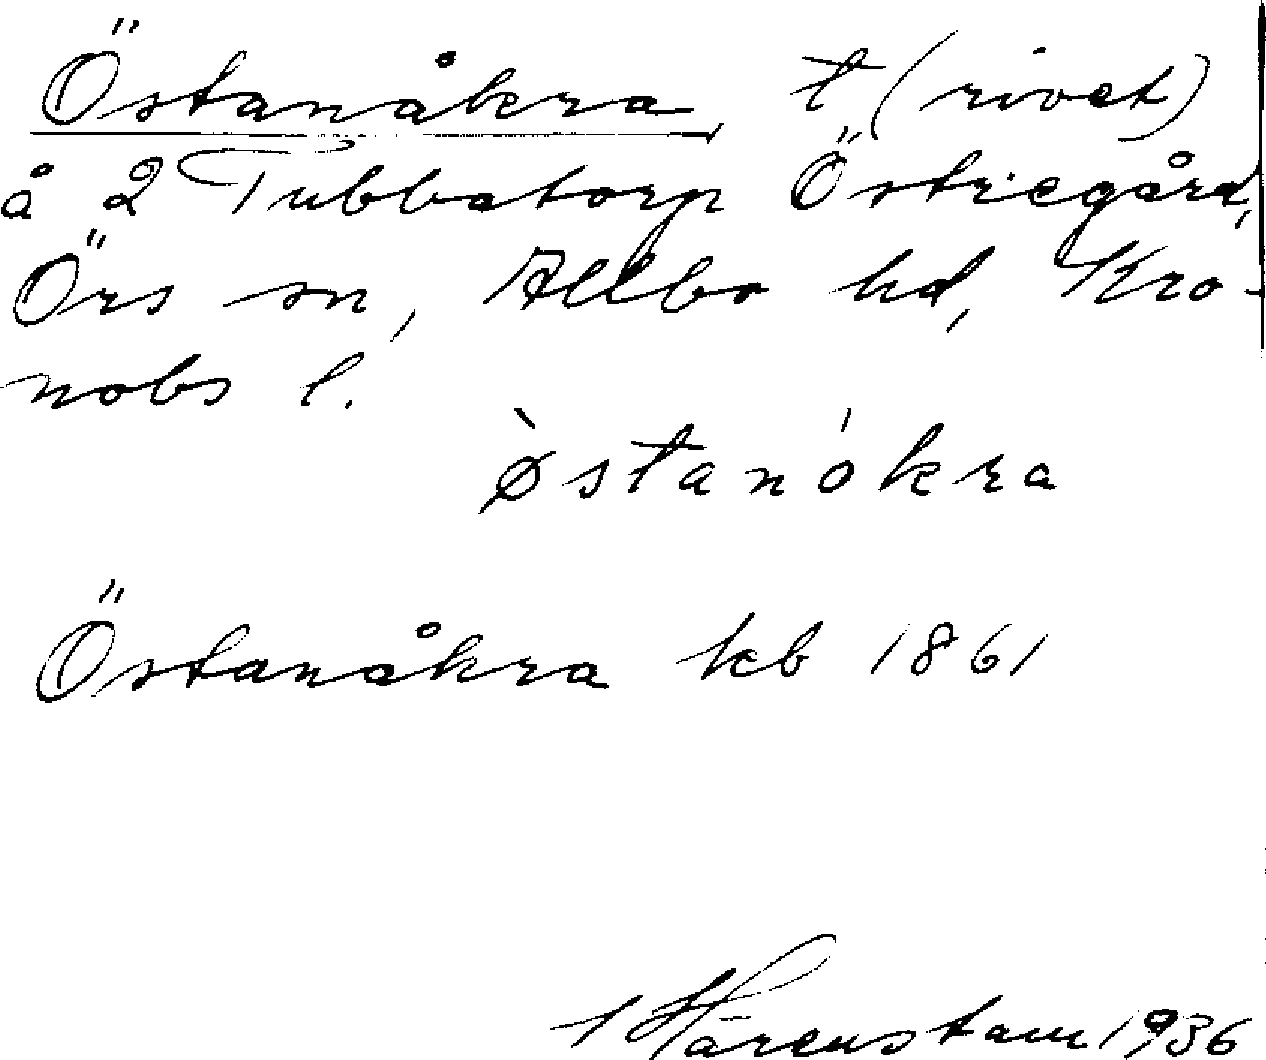 Östanåkra, t (rivet)
å 2 Tubbatorp Östregård,
Örs sn, Allbo hd, Kro-
nobs l.
ø̀stanókra
Östanåkra kb 1861
Härenstam 1936